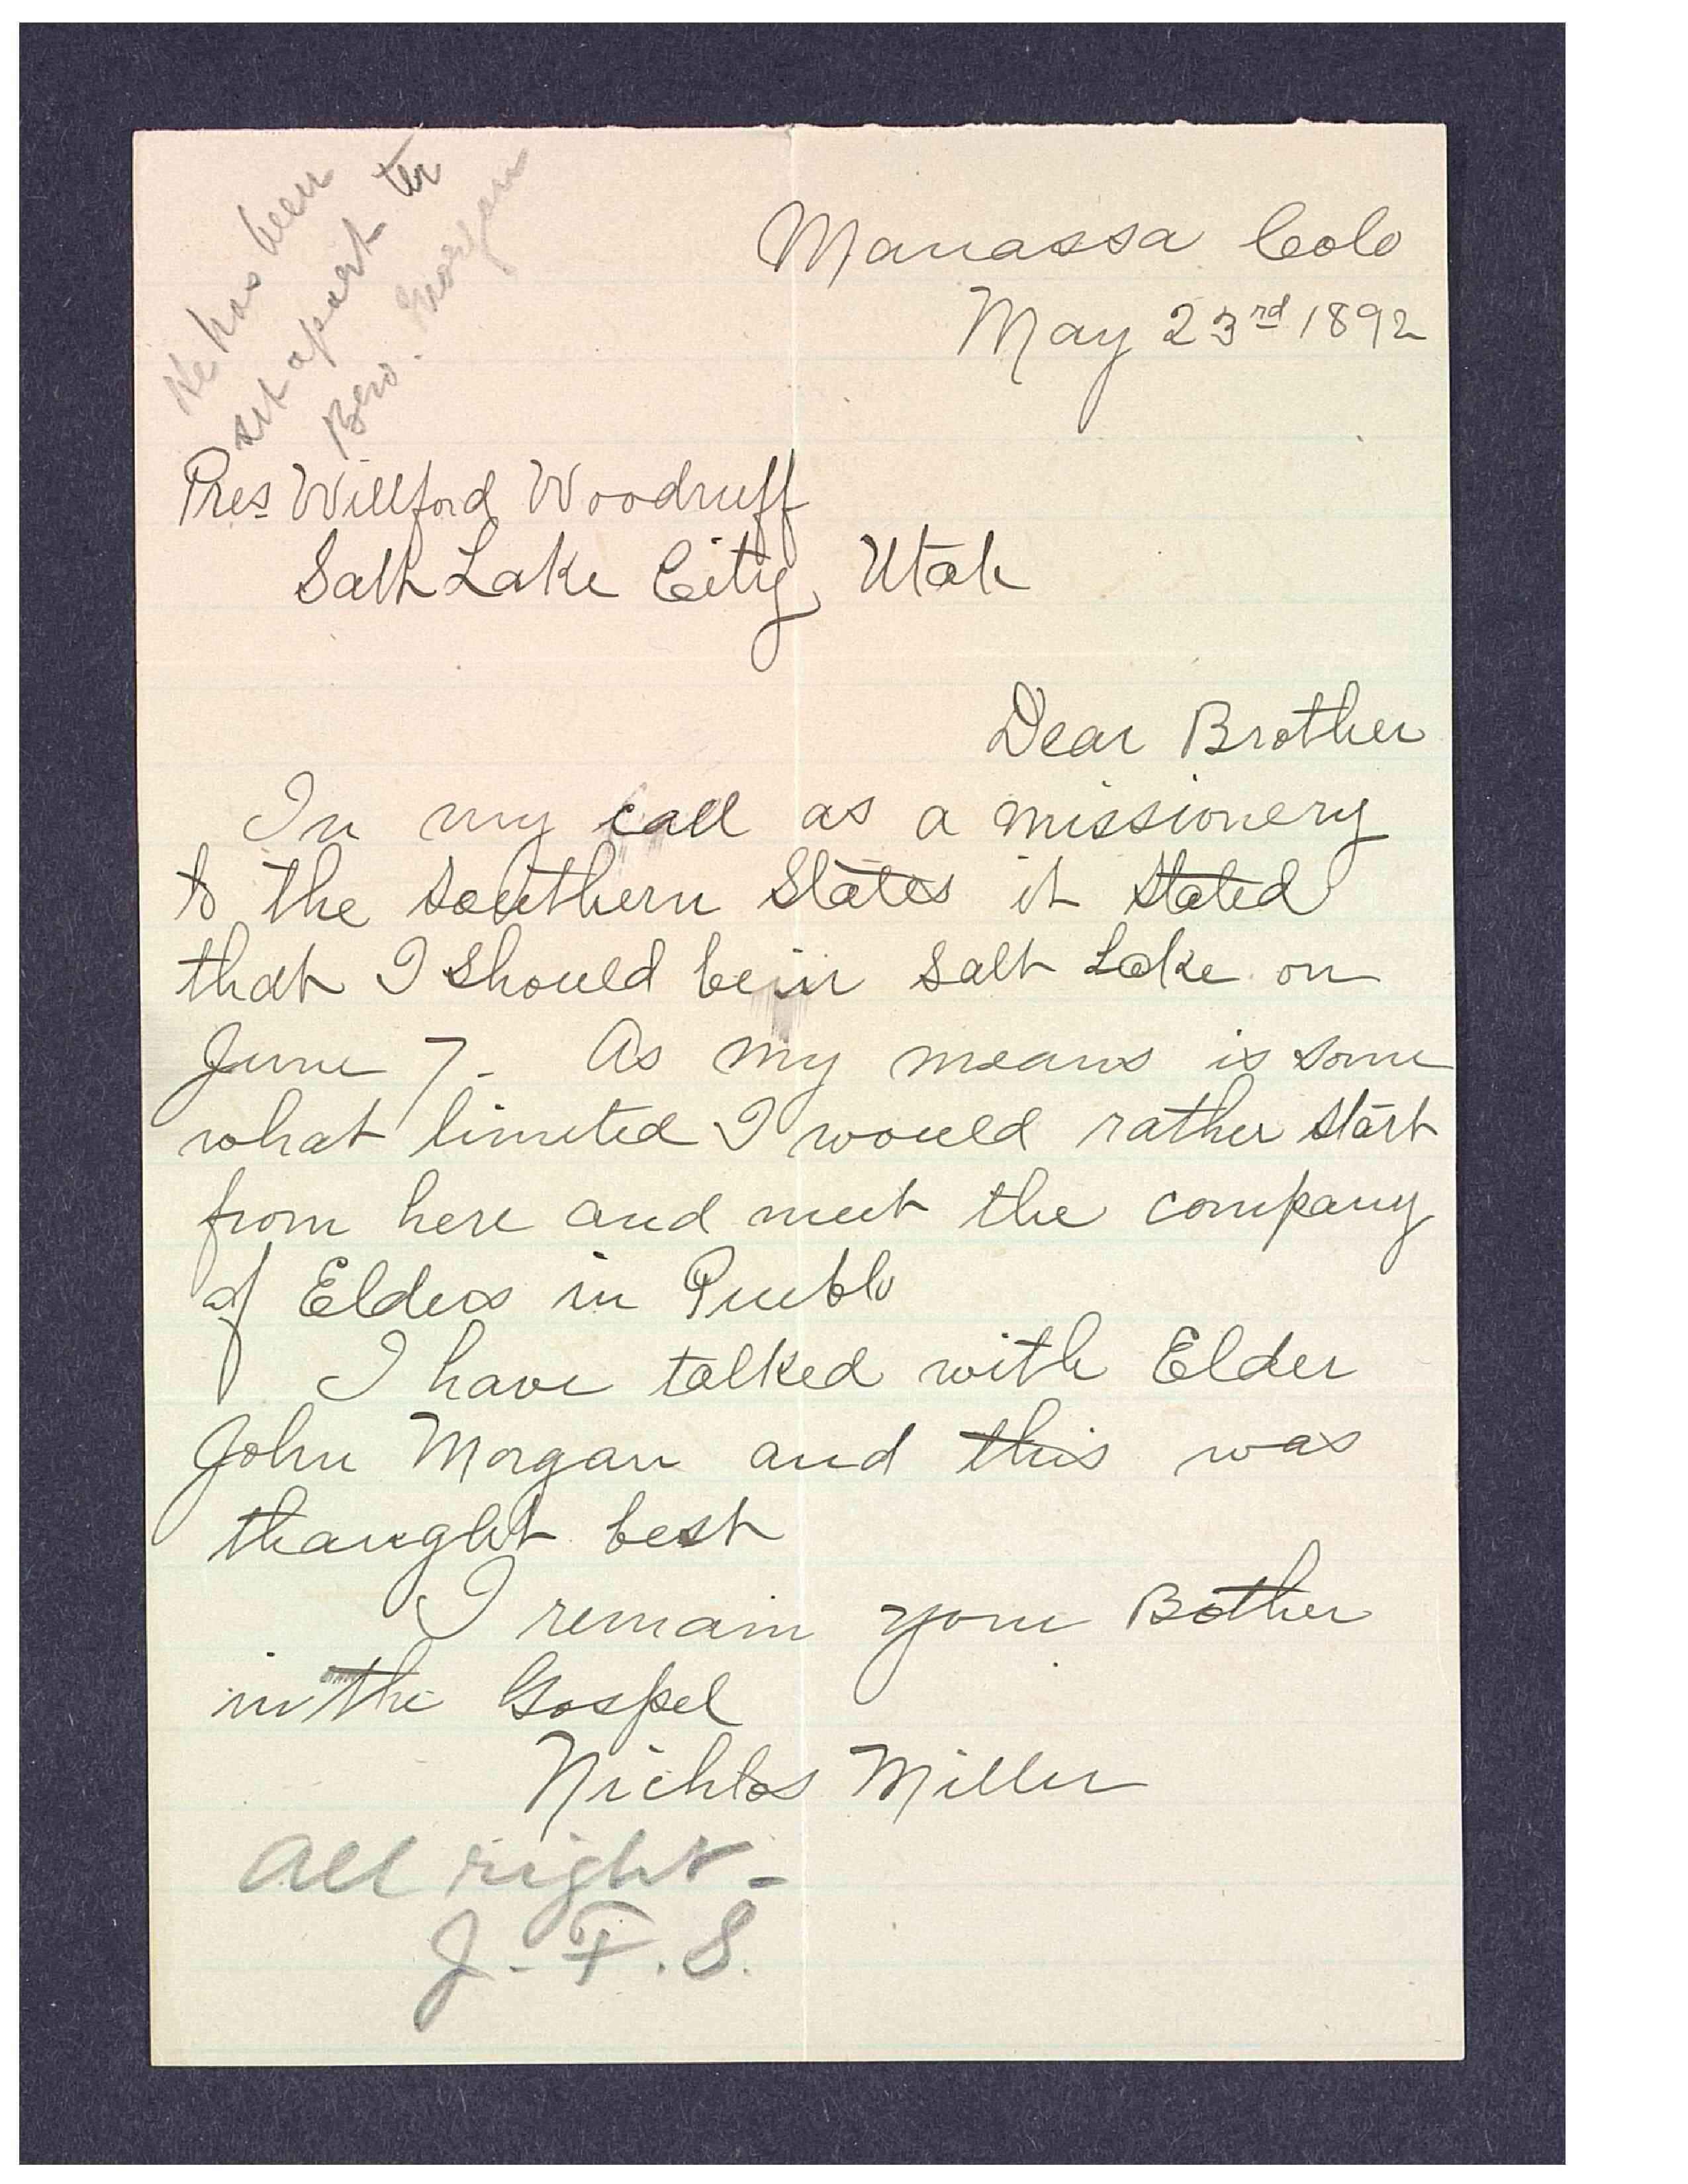 He has been
set apart by
Bro. Morgan
Manassa Colo
May 23rd 1892
Pres Willford Woodruff
Salt Lake City, Utah
Dear Brother
In my call as a missionery
to the Southern States it stated
that I should be in Salt Lake on
June 7. As my means is some
what limeted I would rather start
from here and meet the company
of Elders in Pueblo
I have talked with Elder
John Morgan and this was
thaught best
I remain your Bother
in the Gospel
Nichlos Miller
All right -
J. F. S.